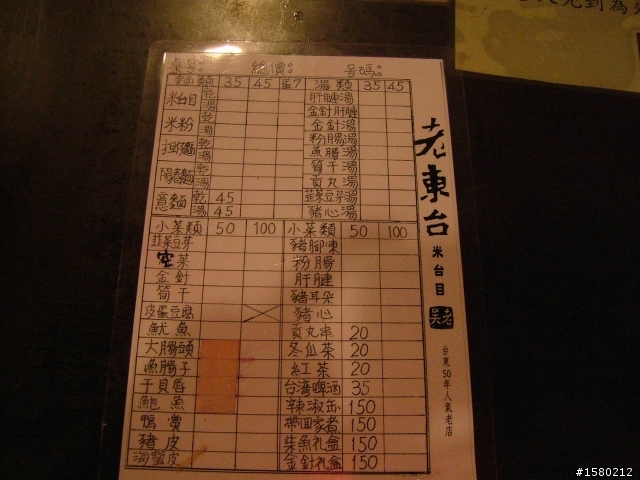 桌号: 總價: 号碼:
麵類 35 45 蛋7 湯類 35 45
米台目 乾 湯
米粉 乾 湯
担仔麵 乾 湯
陽春麵 乾 湯
意麵 乾 45
湯 45
肝腱湯
金針肝腱
金針湯
粉腸湯
魚腸湯
筍干湯
貢丸湯
韮菜豆芽湯
豬心湯
小菜類 50 100 小菜類 50 100
韮菜豆芽 豬腳凍
空菜 粉腸
金針 肝腱
筍干 豬耳朵
皮蛋豆腐 豬心
魷魚 貢丸串 20
大腸頭 冬瓜茶 20
魚腸子 紅茶 20
干貝唇 台湾啤酒 35
鮑魚 辣椒缶 150
鴨賞 帶回家煮 150
豬皮 柴魚礼盒 150
海蜇皮 金針礼盒 150
老東台
米台目
老吳
台東50年人氣老店
到為
#1580212